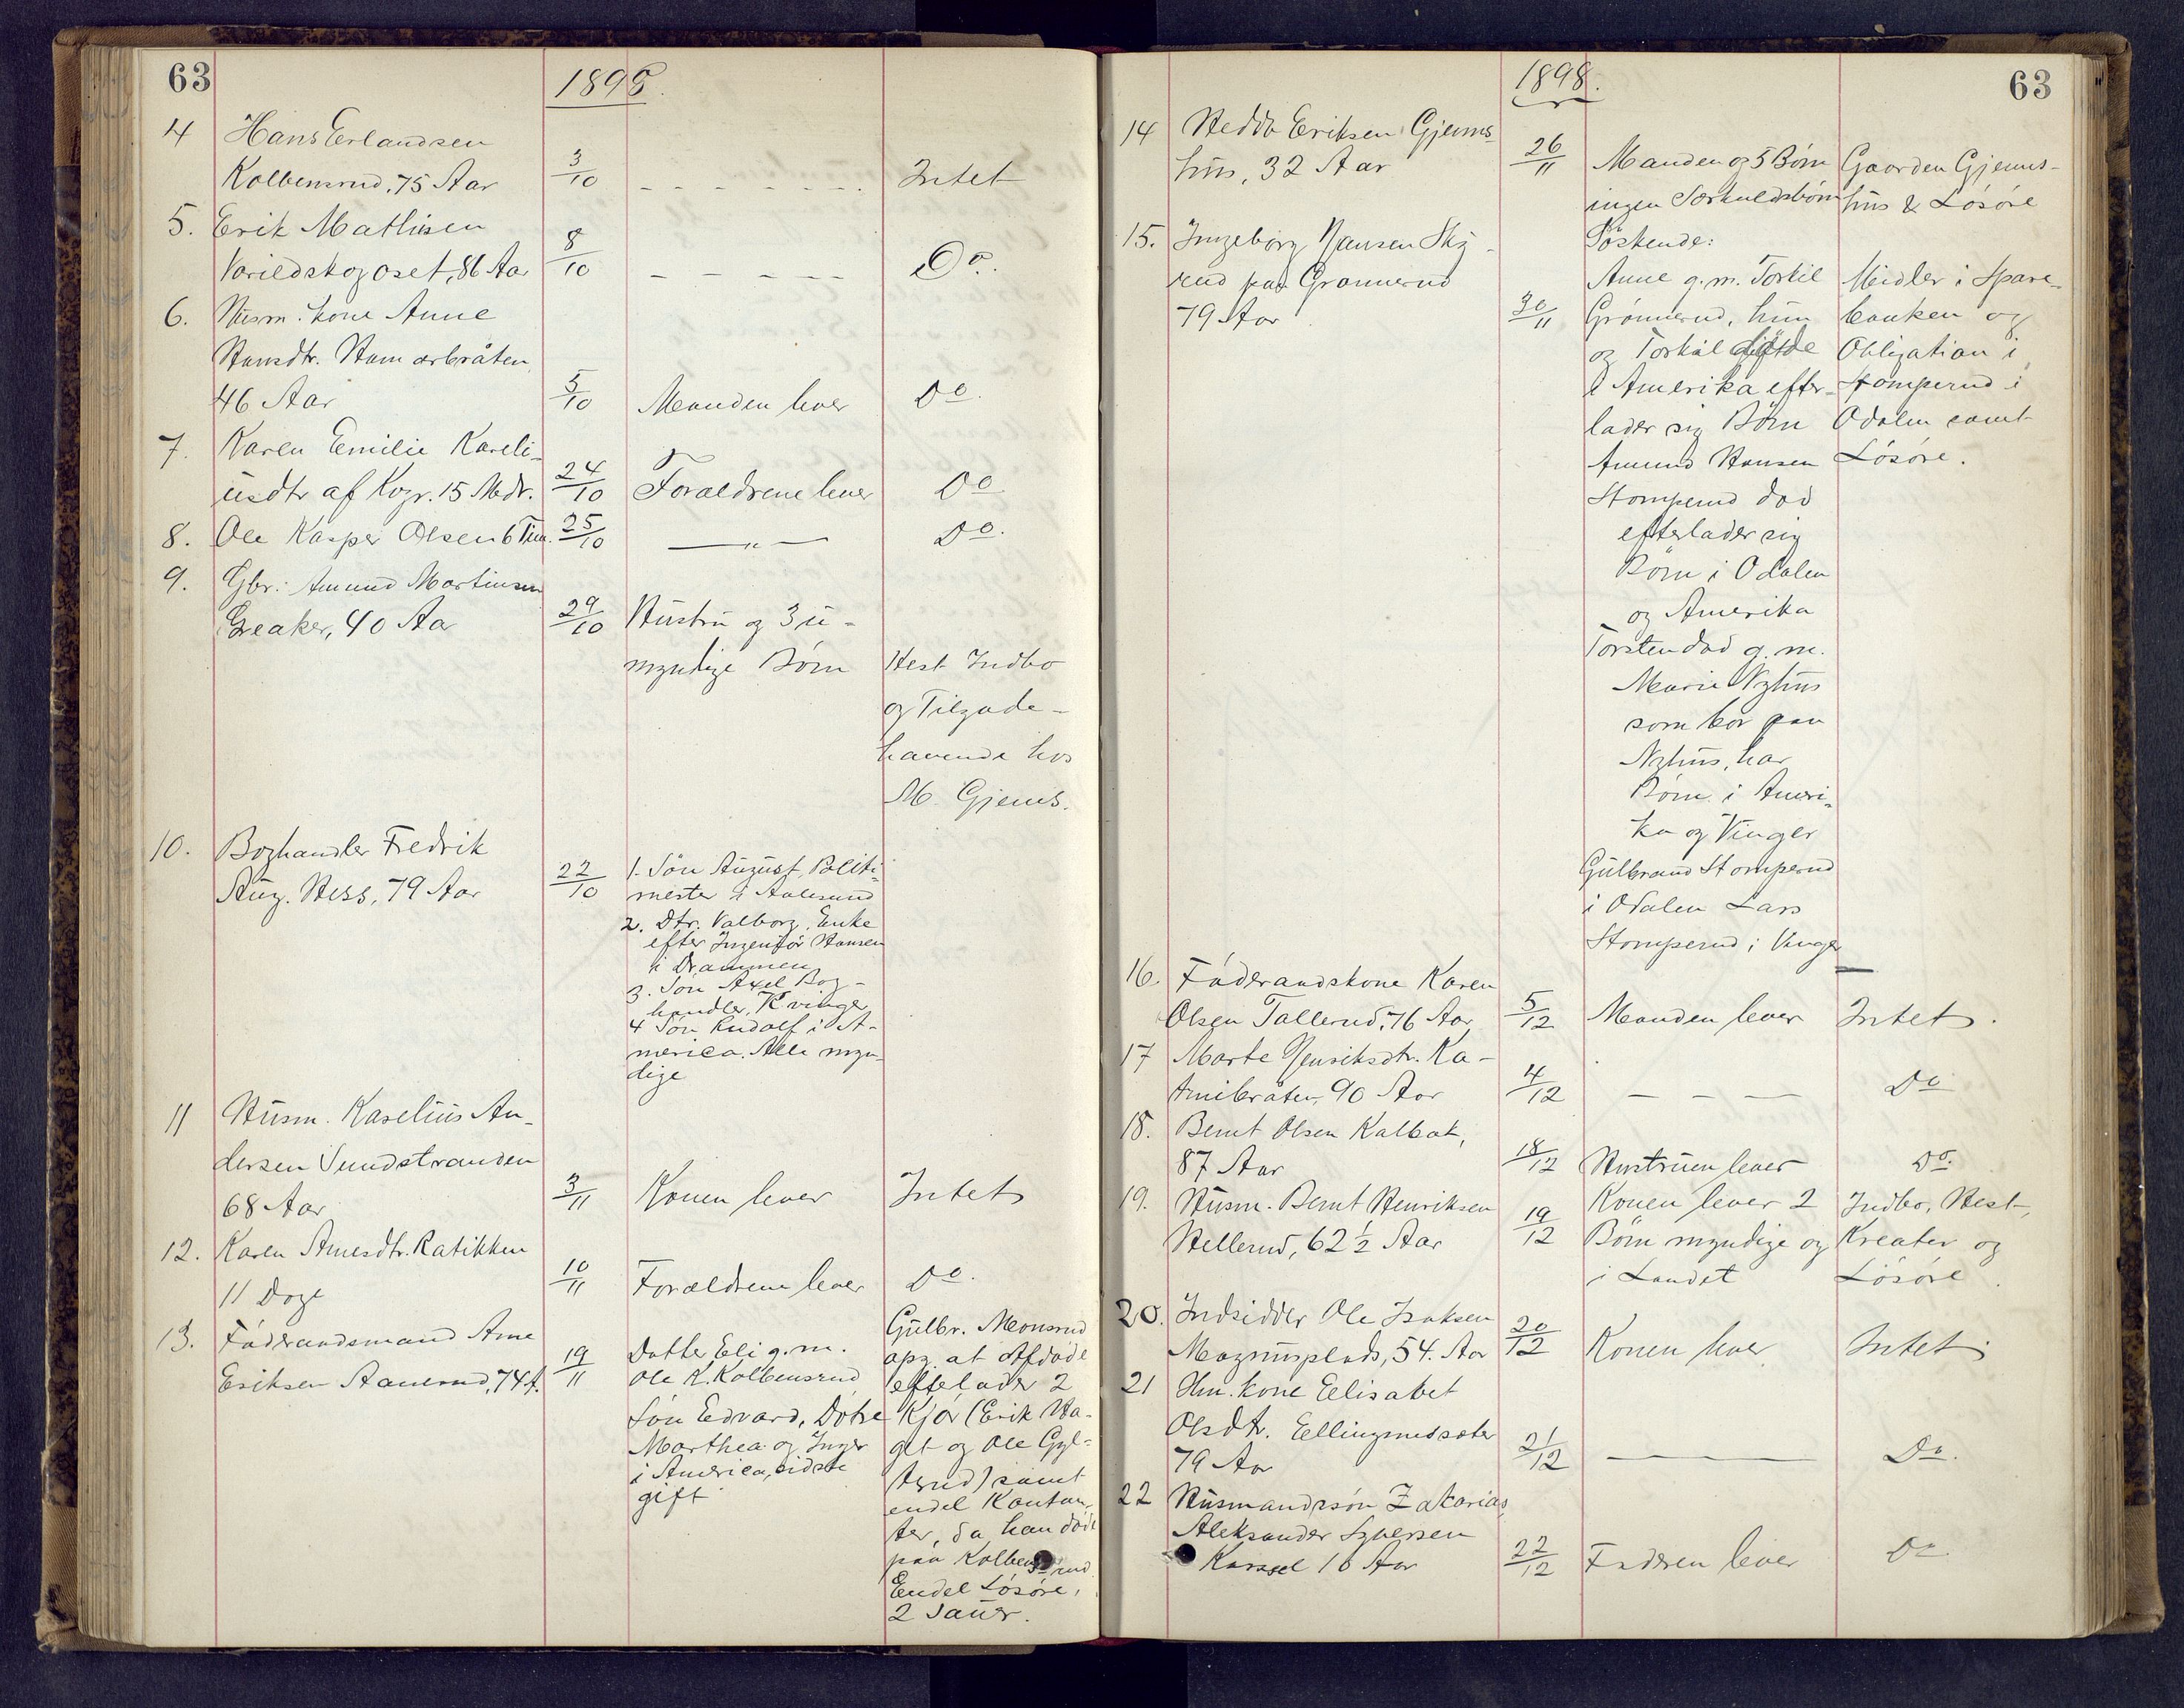 63
1898.
4 Hans Erlandsen
Kolbensrud, 75 Aar 3/10 - - - - - - - - Intet
5. Erik Mathisen
Varildskogoset, 86 Aar 8/10 - - - - - Do.
6. Husm. kone Anne
Hansdtr. Hamarbråten,
46 Aar 5/10 Manden lever Do.
7. Karen Emilie Kareli-
usdtr af Kogr. 15 Mdr. 24/10 Forældrene lever Do
8. Ole Kasper Olsen 6 Tim. 25/10 —„— Do.
9. Gbr: Amund Martinsen
Greaker, 40 Aar 29/10 Hustru og 3 u-
myndige Børn Hest Indbo
og Tilgode-
havende hos
M. Gjems.
10. Boghandler Fredrik
Aug. Hess, 79 Aar 22/10 1. Søn August, Politi-
mester i Aalesund
2. Dtr. Valborg, Enke
efter Ingeniør Hansen
i Drammen
3. Søn Axel Bog-
handler, Kvinger
4 Søn Rudolf i A-
merica. Alle myn-
dige
11 Husm. Karelius An-
dersen Sundstranden
68 Aar 3/11 Konen lever Intet
12. Karen Arnesdtr. Ratikken
11 Dage 10/11 Forældrene lever Do.
13. Føderaadsmand Arne
Eriksen Aanerud, 74 A. 19/11 Datter Eli g.m.
Ole K. Kolbensrud
Søn Edvard, Døtre
Marthea og Inger
i America, sidste
gift
Gulbr. Monsrud
opg. at Afdøde
efterlader 2
Kjør (Erik Ha-
get og Ole Gyl-
terud) samt
endel Kontan-
ter, da han døde
paa Kolbensrud.
Endel Løsøre,
2 Sauer.
63
1898.
14 Hedda Eriksen Gjems-
hus, 32 Aar 26/11 Manden og 5 Børn Gaarden Gjems-
ingen Særkuldsbørn hus & Løsøre
15. Ingeborg Hansen Sky-
rud paa Grønnerud
79 Aar 30/11
Søskende:
Anne g.m. Torkil
Grønnerud, hun
og Torkil døde
i Amerika efter-
lader sig Børn
Amund Hansen
Stomperud død
efterlader sig
Børn i Odalen
og Amerika
Torsten død g.m.
Marie Nyhus
som bor paa
Nyhus, har
Børn i Ameri-
ka og Vinger
Gulbrand Stomperud
i Odalen Lars
Stomperud i Vinger
Midler i Spare-
banken og
Obligation i
Stomperud i
Odalen samt
Løsøre.
16. Føderaadskone Karen
Olsen Tallerud, 76 Aar 5/12 Manden lever Intet.
17 Marte Henriksdtr. Ka-
tmibråten, 90 Aar 4/12 - - - Do
18. Bernt Olsen Kalbak,
87 Aar 18/12 Hustruen lever Do.
19. Husm. Bernt Henriksen
Hellerud, 62 1/2 Aar 19/12 Konen lever 2 Indbo, Hest,
Børn myndige og Kreatur og
i Landet Løsøre.
20. Indsidder Ole Isaksen
Magnusplads, 54. Aar 20/12 Konen lever Intet
21 Hm. kone Elisabet
Olsdtr. Ellingsrudsæter
79 Aar 21/12 — Do.
22 Husmandssøn Zakarias
Aleksander Syversen
Karssel 16 Aar 22/12 Faderen lever Do